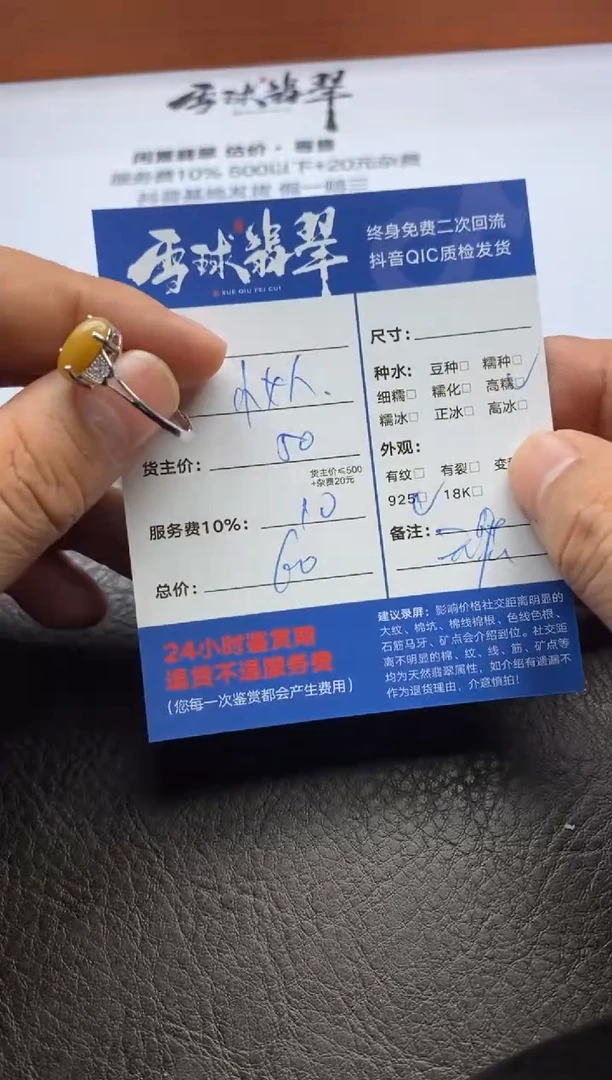 雪球翡翠
闲置翡翠 估价·零售
服务费10% 500以下+20元杂费
抖音基地发货 假一赔三
雪球翡翠
XUE QIU FEI CUI
终身免费二次回流
抖音QIC质检发货
货主价: 50
货主价≤500
+杂费20元
服务费10%: 10
总价: 60
尺寸:
种水: 豆种□ 糯种□
细糯□ 糯化□ 高糯☑
糯冰□ 正冰□ 高冰□
外观:
有纹□ 有裂□ 变
925☑ 18K□
备注:
24小时鉴赏期
退货不退服务费
(您每一次鉴赏都会产生费用)
建议录屏: 影响价格社交距离明显的
大纹、棉坑、棉线棉根、色线色根、
石筋马牙、矿点会介绍到位。社交距
离不明显的棉、纹、线、筋、矿点等
均为天然翡翠属性, 如介绍有遗漏不
作为退货理由, 介意慎拍!